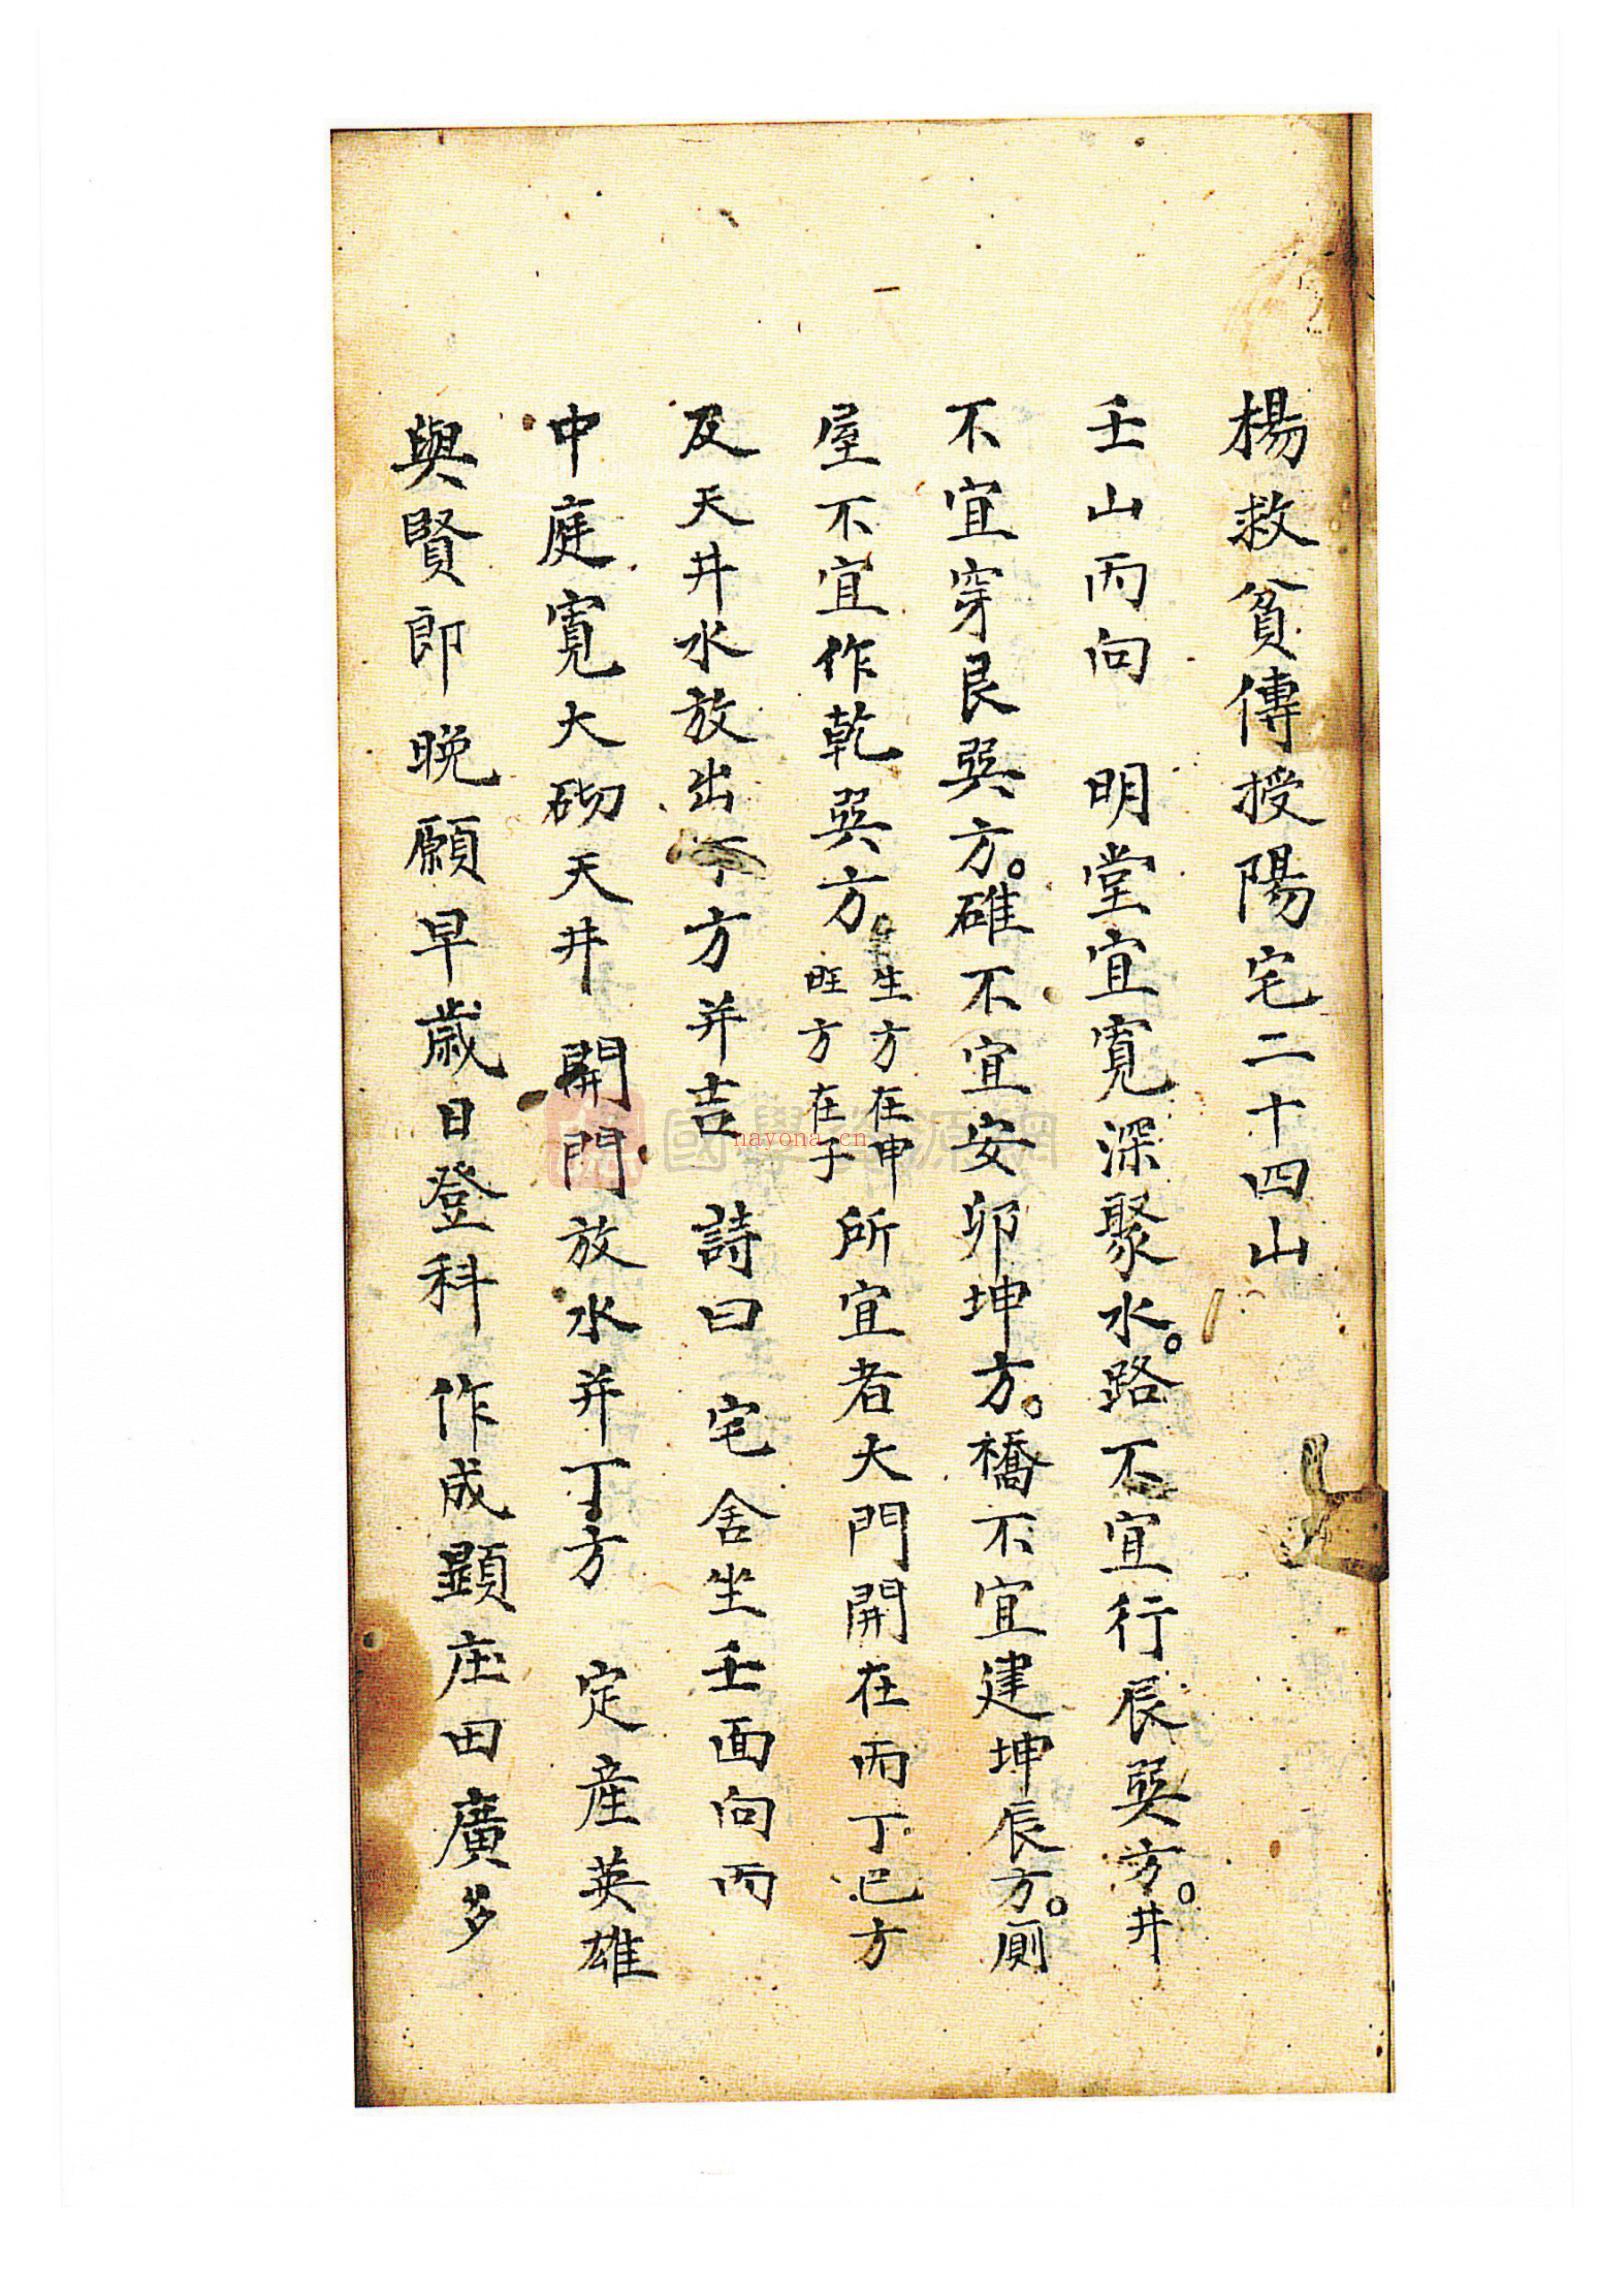 楊救貧傳授陽宅二十四山
壬山丙向 明堂宜寬深聚水。路不宜行辰巽方。井
不宜穿艮巽方。碓不宜安卯坤方。橋不宜建坤辰方。廁
屋不宜作乾巽方 生方在申 旺方在子 所宜者大門開在丙丁巳方
及天井水放出丁方并吉 詩曰 宅舍坐壬面向丙
中庭寬大砌天井 開門放水并丁方 定產英雄
與賢郎 晚願早歲日登科 作成顯庄田廣多
國學資源網
nayona.cn